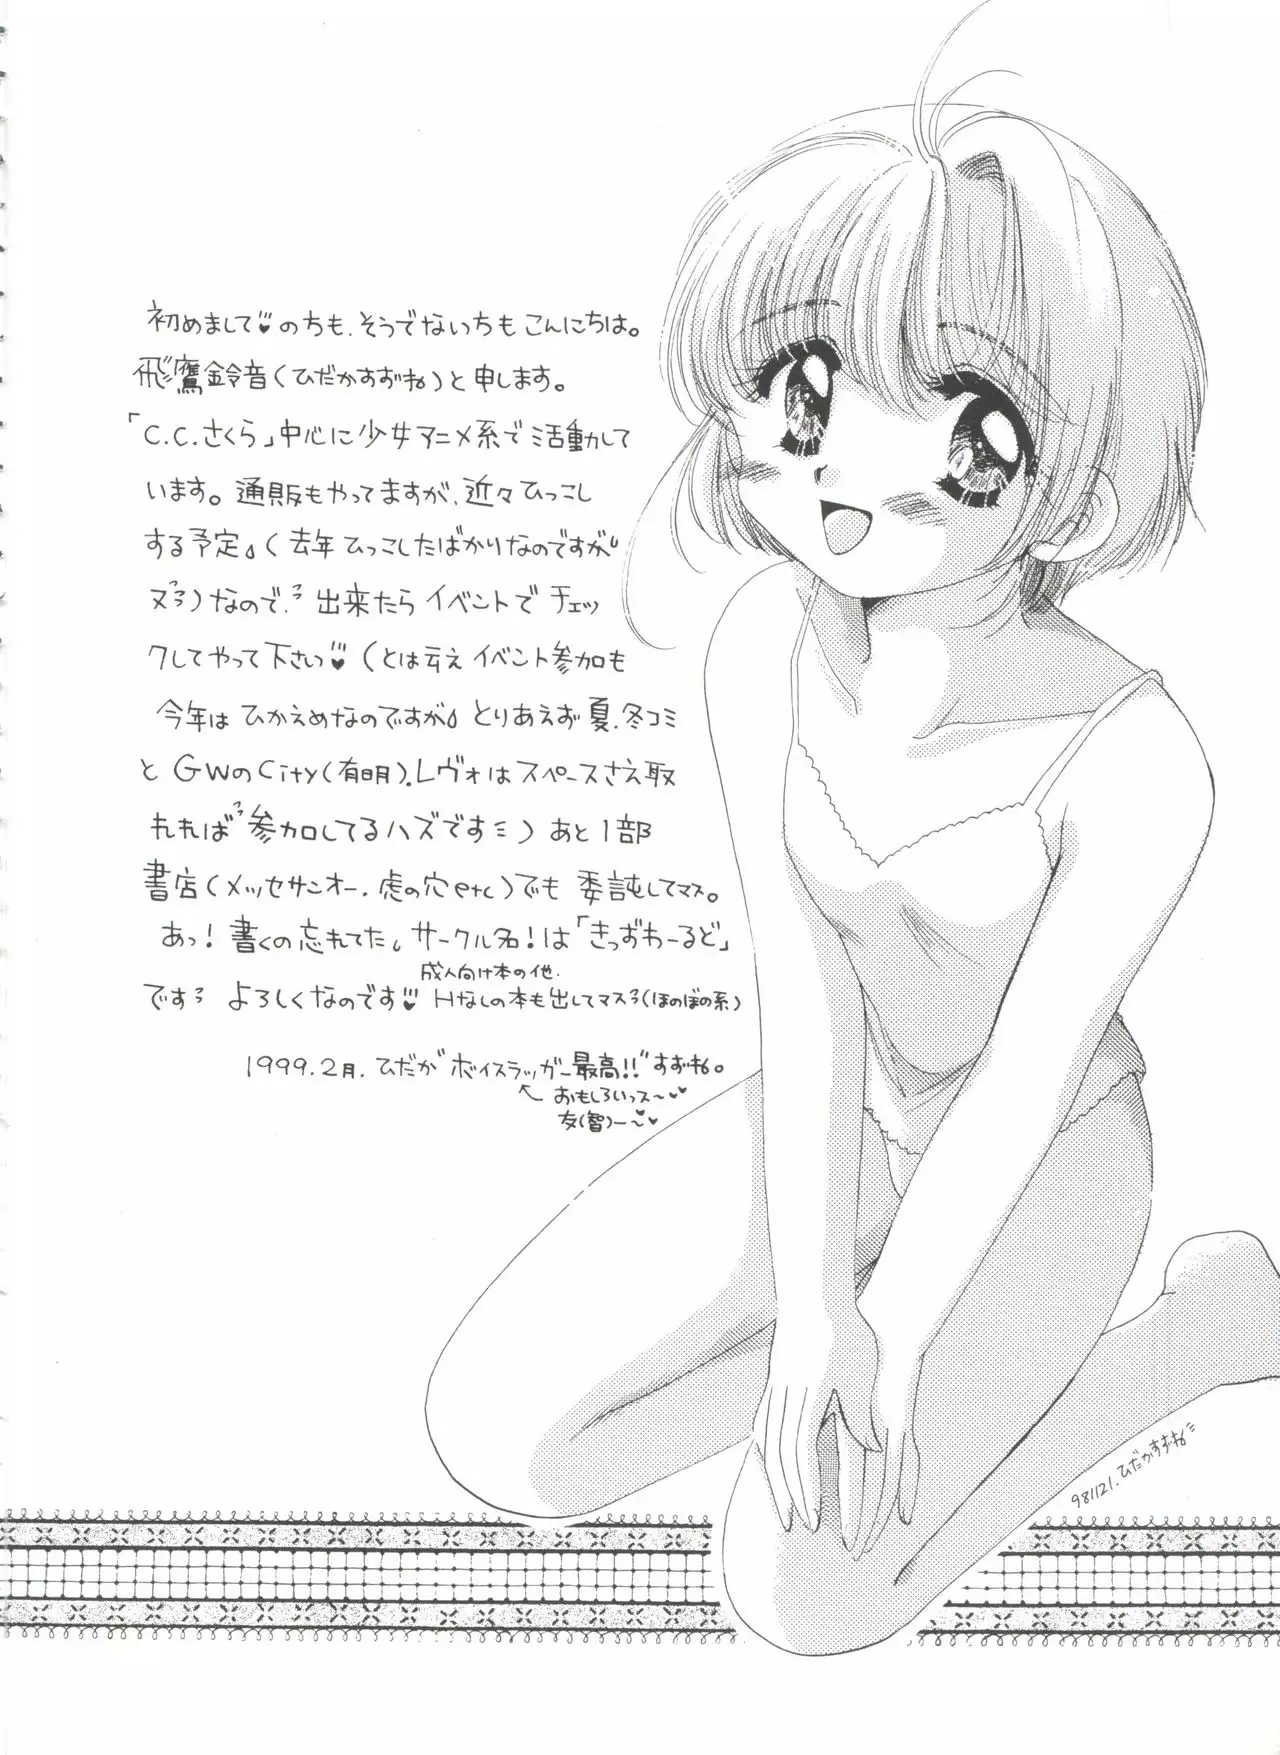 初めまして♥のちも、そうでないちもこんにちは。
飛鷹鈴音(ひだかすずね)と申します。
「C.C.さくら」中心に少女アニメ系で活動して
います。通販もやってますが、近々ひっこし
する予定。(去年ひっこしたばかりなのですが
)なので、出来たらイベントでチェッ
クしてやって下さいっ♥(とは云えイベント参加も
今年はひかえめなのですが。とりあえず夏、冬コミ
とGWのCity(有明)、レヴォはスペースさえ取
れれば参加してるハズです)あと1部
書店(メッセサンオー、虎の穴etc)でも委託してマス。
あっ!書くの忘れてた。サークル名!は「きっずわーるど」
成人向け本の他、
です よろしくなのです♥Hなしの本も出してマス(ほのぼの系)
1999.2月.ひだか"ボイスラッガー最高!!"すずね。
おもしろいっス〜♥♥
友(智)ー〜♥♥
981121.ひだかすずね